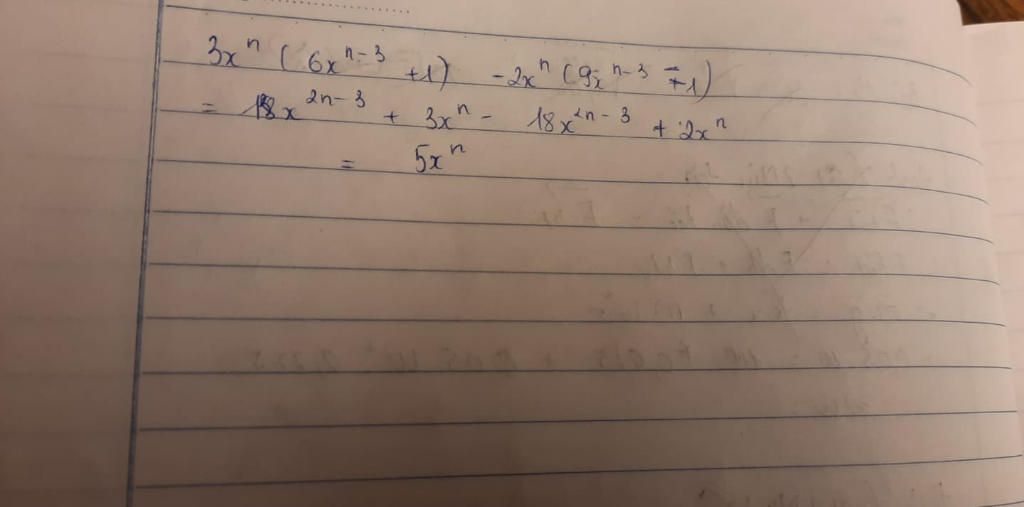 3xⁿ ( 6xⁿ⁻³ +1) -2xⁿ (9xⁿ⁻³ -1)
= 18x²ⁿ⁻³ + 3xⁿ - 18x²ⁿ⁻³ + 2xⁿ
= 5xⁿ